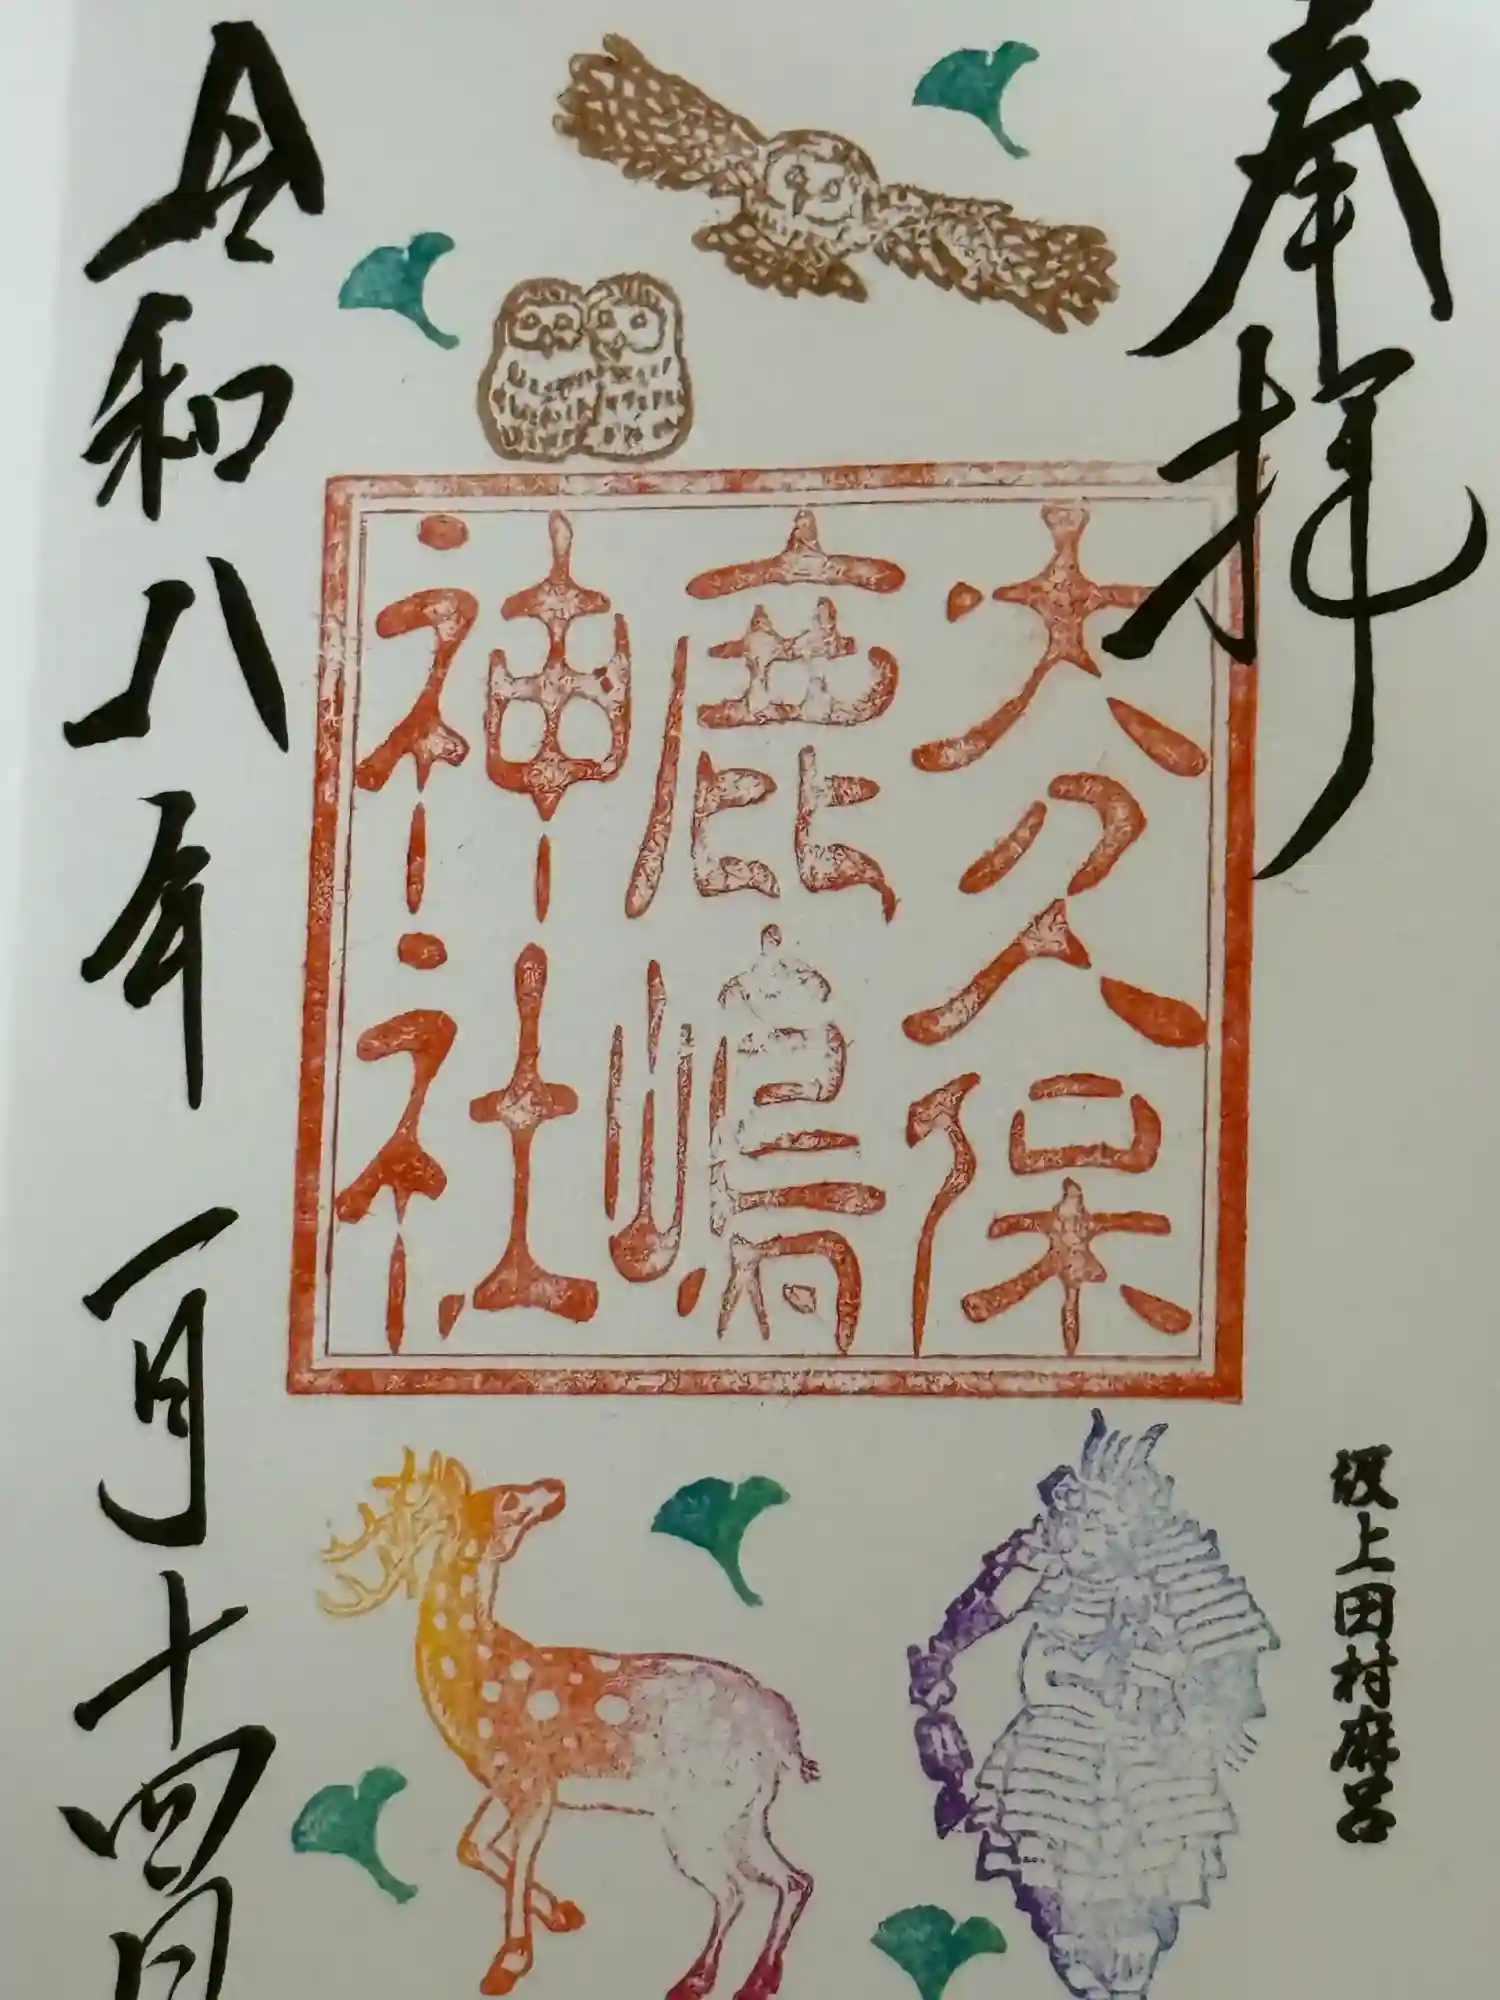 奉拝
大久保
鹿嶋
神社
坂上田村麻呂
令和八年 一月十四日